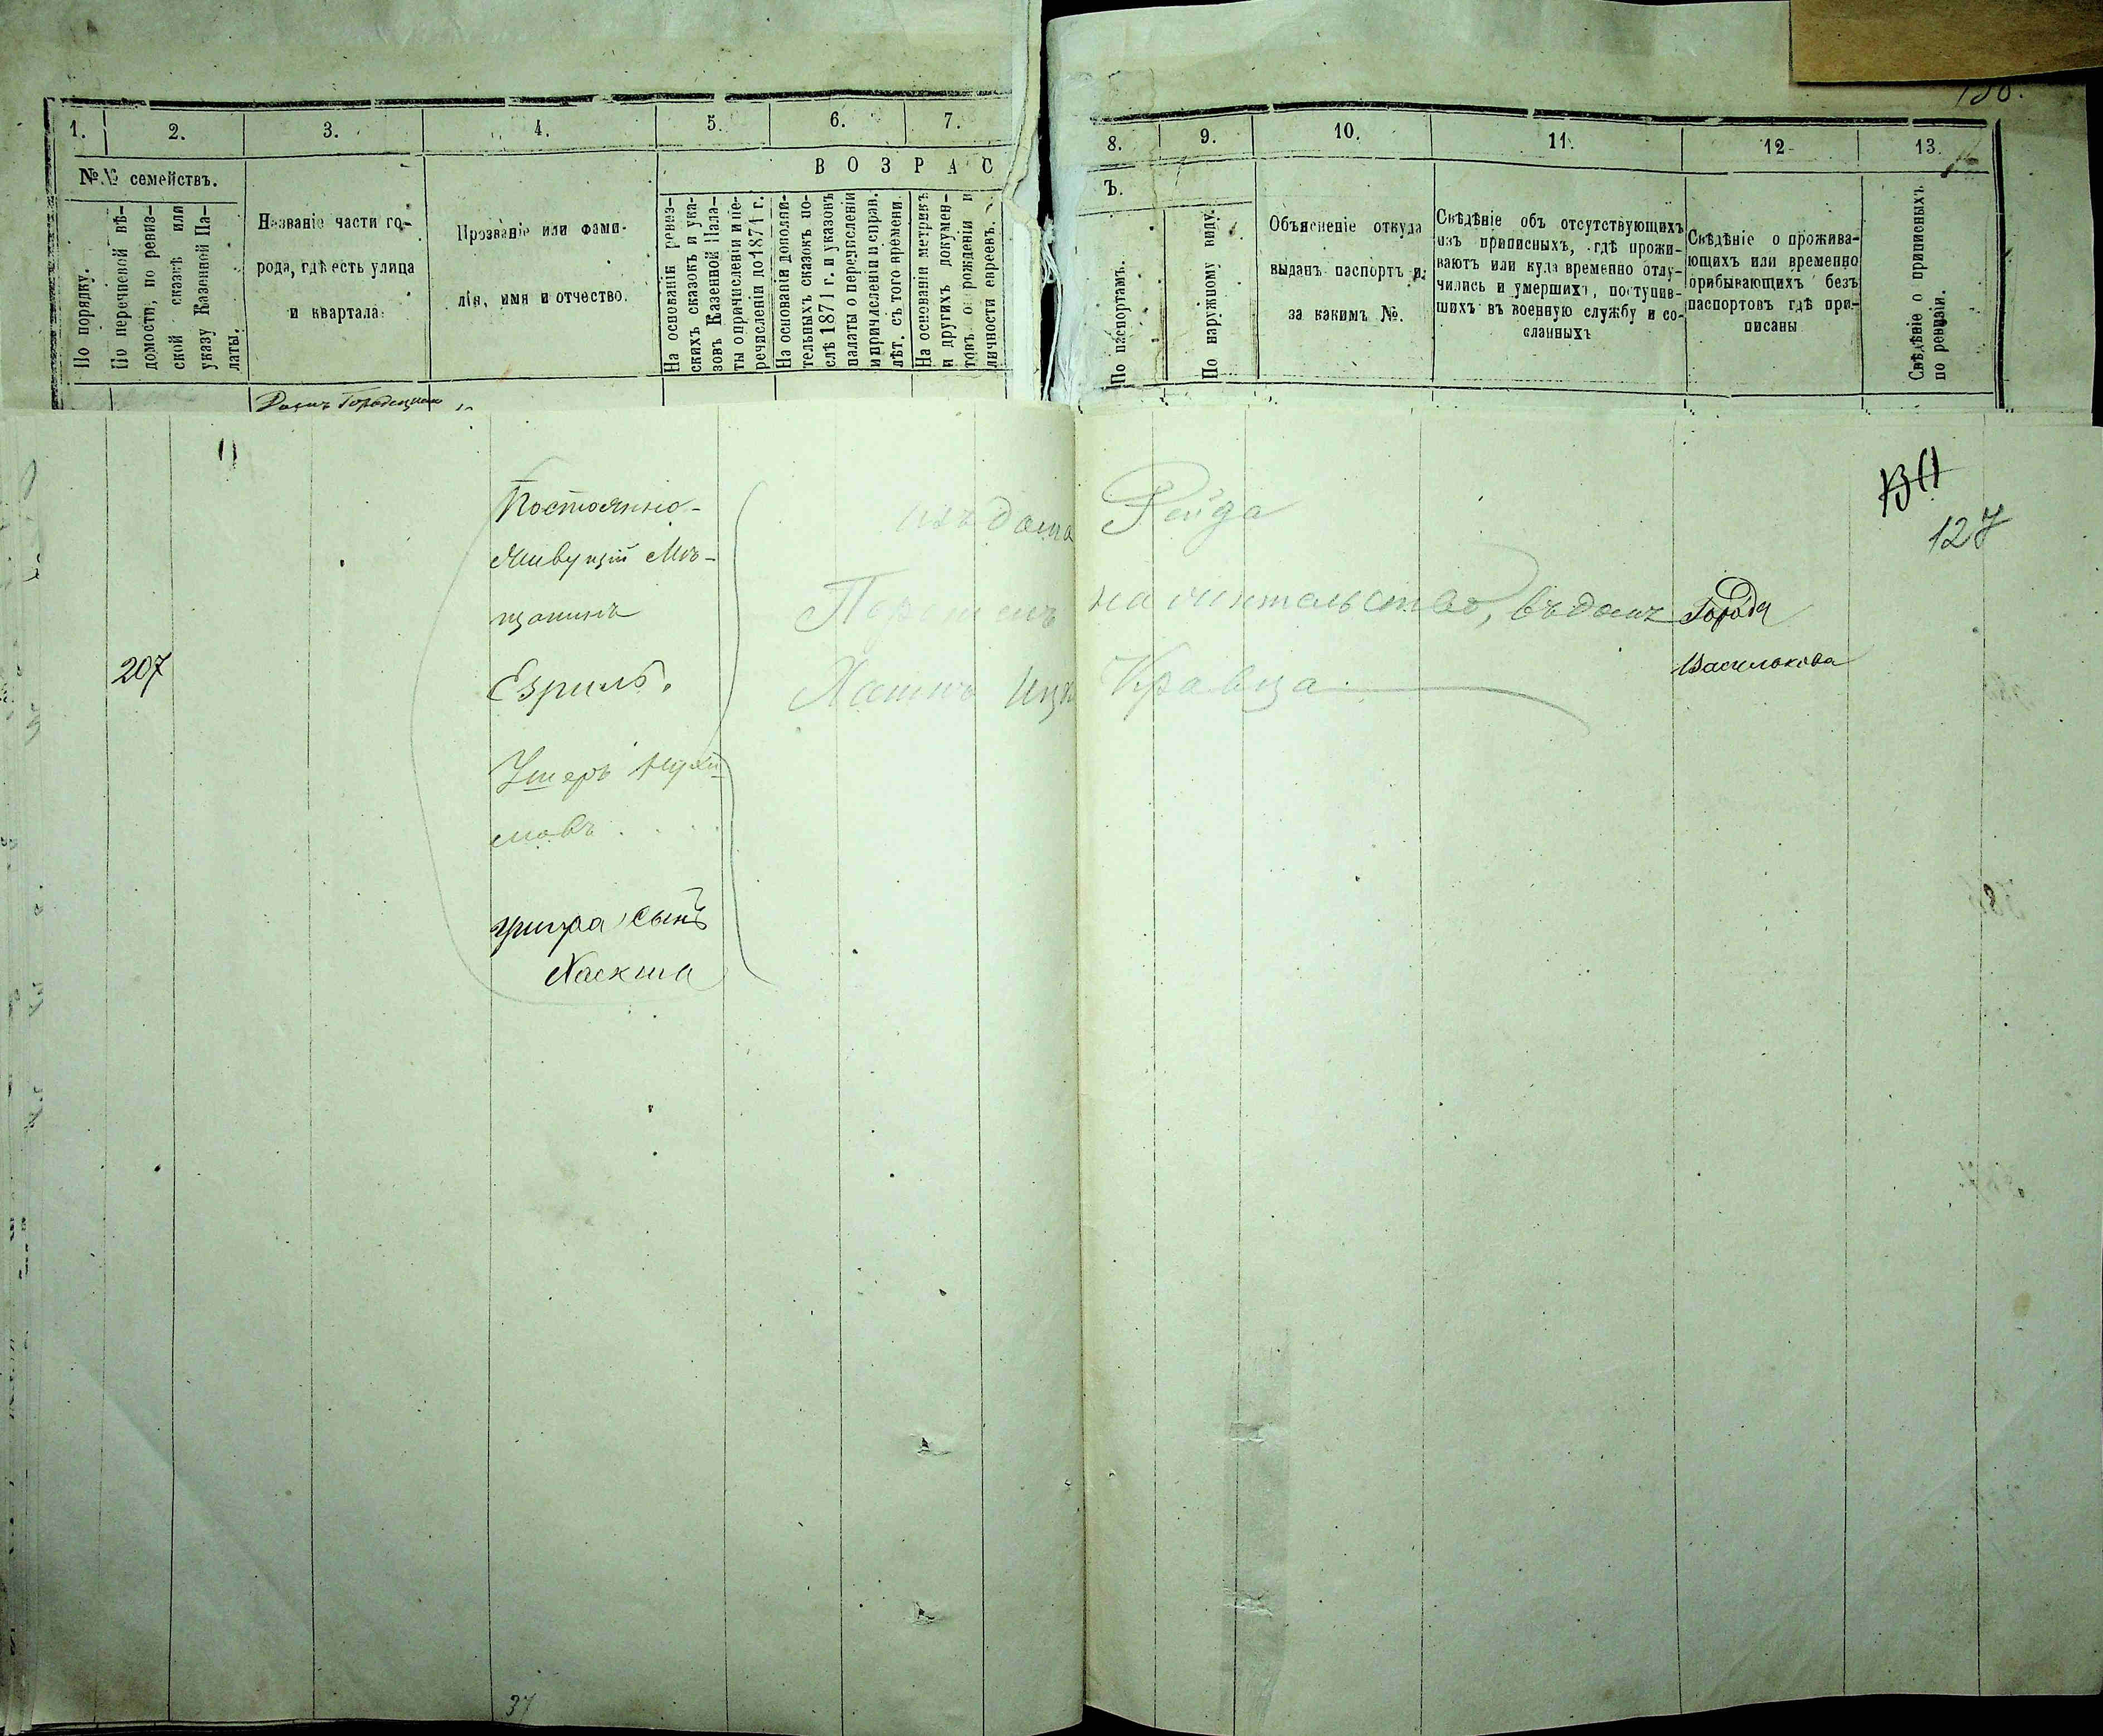 1.
2.
3.
4.
5.
6.
7.
№№ семействъ.
По порядку.
По перечневой вѣ-
домости, по ревиз-
ской сказкѣ или
указу Казенной Па-
латы.
Названіе части го-
рода, гдѣ есть улица
и квартала
Прозваніе или фами-
лія, имя и отчество.
ВОЗРАС
На основаніи ревиз-
скихъ сказокъ и ука-
зовъ Казенной Пала-
ты о причисленіи и пе-
речисленіи до 1871 г.
На основаніи дополни-
тельныхъ сказокъ по-
слѣ 1871 г. и указовъ
палаты о перечисленіи
и причисленіи и справ.
лѣт. съ того времени.
На основаніи метрикъ
и другихъ докумен-
товъ о рожденіи и
личности евреевъ.
8.
9.
10.
11.
12
13.
Ъ.
По паспортамъ.
По наружному виду.
Объясненіе откуда
выданъ паспортъ и
за какимъ №.
Свѣдѣніе объ отсутствующихъ
изъ приписныхъ, гдѣ прожи-
ваютъ или куда временно отлу-
чились и умершихъ, поступив-
шихъ въ военную службу и со-
сланныхъ
Свѣдѣніе о прожива-
ющихъ или временно
прибывающихъ безъ
паспортовъ гдѣ при-
писаны
Свѣдѣніе о приписныхъ
по ревизіи.
Постоянно-
Живущій Мѣ-
щанинъ
207
Езриль.
Ушеръ Нухи-
мовъ
Ушера сынъ
Хаскель
изъ дома Рейда
на жительство, въ домъ
Кравца
Города
Василькова
127
37